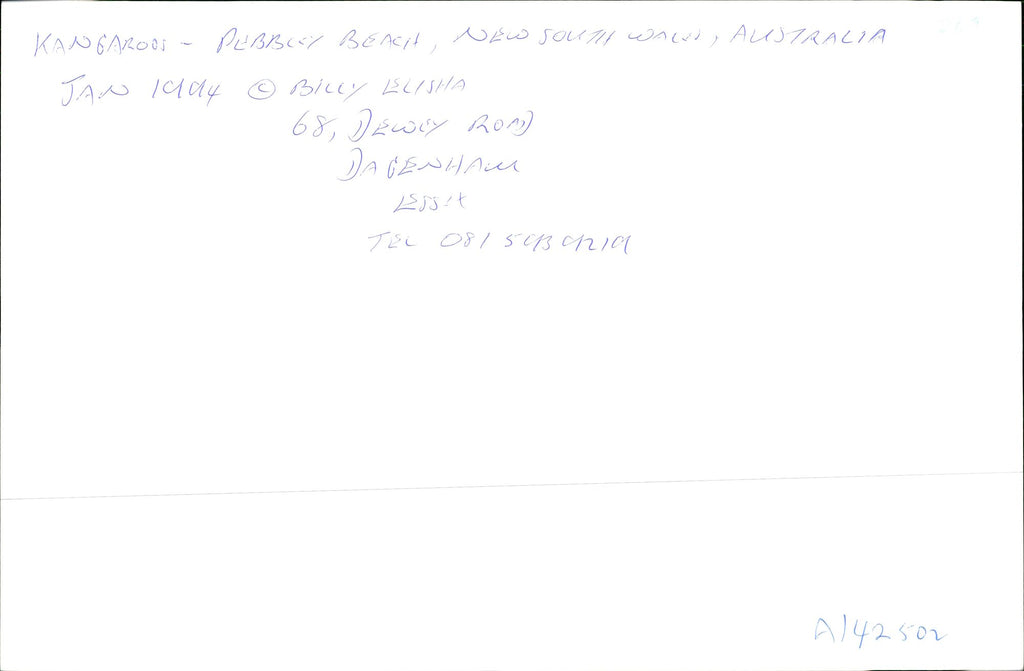 KANGAROOS - PEBBLEY BEACH, NEW SOUTH WALES, AUSTRALIA
JAN 1994 © BILLY ELISHA
68, DEWEY ROAD
DAGENHAM
ESSEX
TEL 081 593 9219
A142502